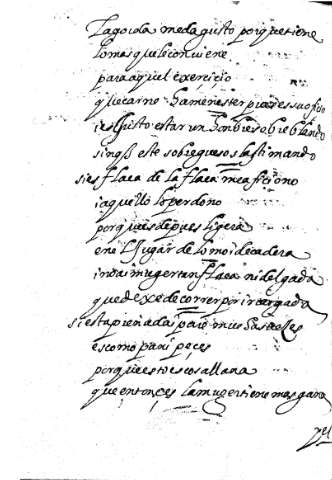 La gorda me da gusto porque tiene
lo mas que le conviene
para aquel exercicio
que carne a menester para ese oficio
i es gusto estar un hombre sobre blando
sin q este sobre guesos lastimando
si es flaca de la flaca me aficiono
i aquello le perdono
porques depues ligera
en el lugar de lomo i de cadera
i no ai muger tan flaca ni delgada
que dexe de correr por ir cargada
si esta preñada para mis
es como para peçes
porque esto es cosa llana
que entonçes la muger tiene mas gana